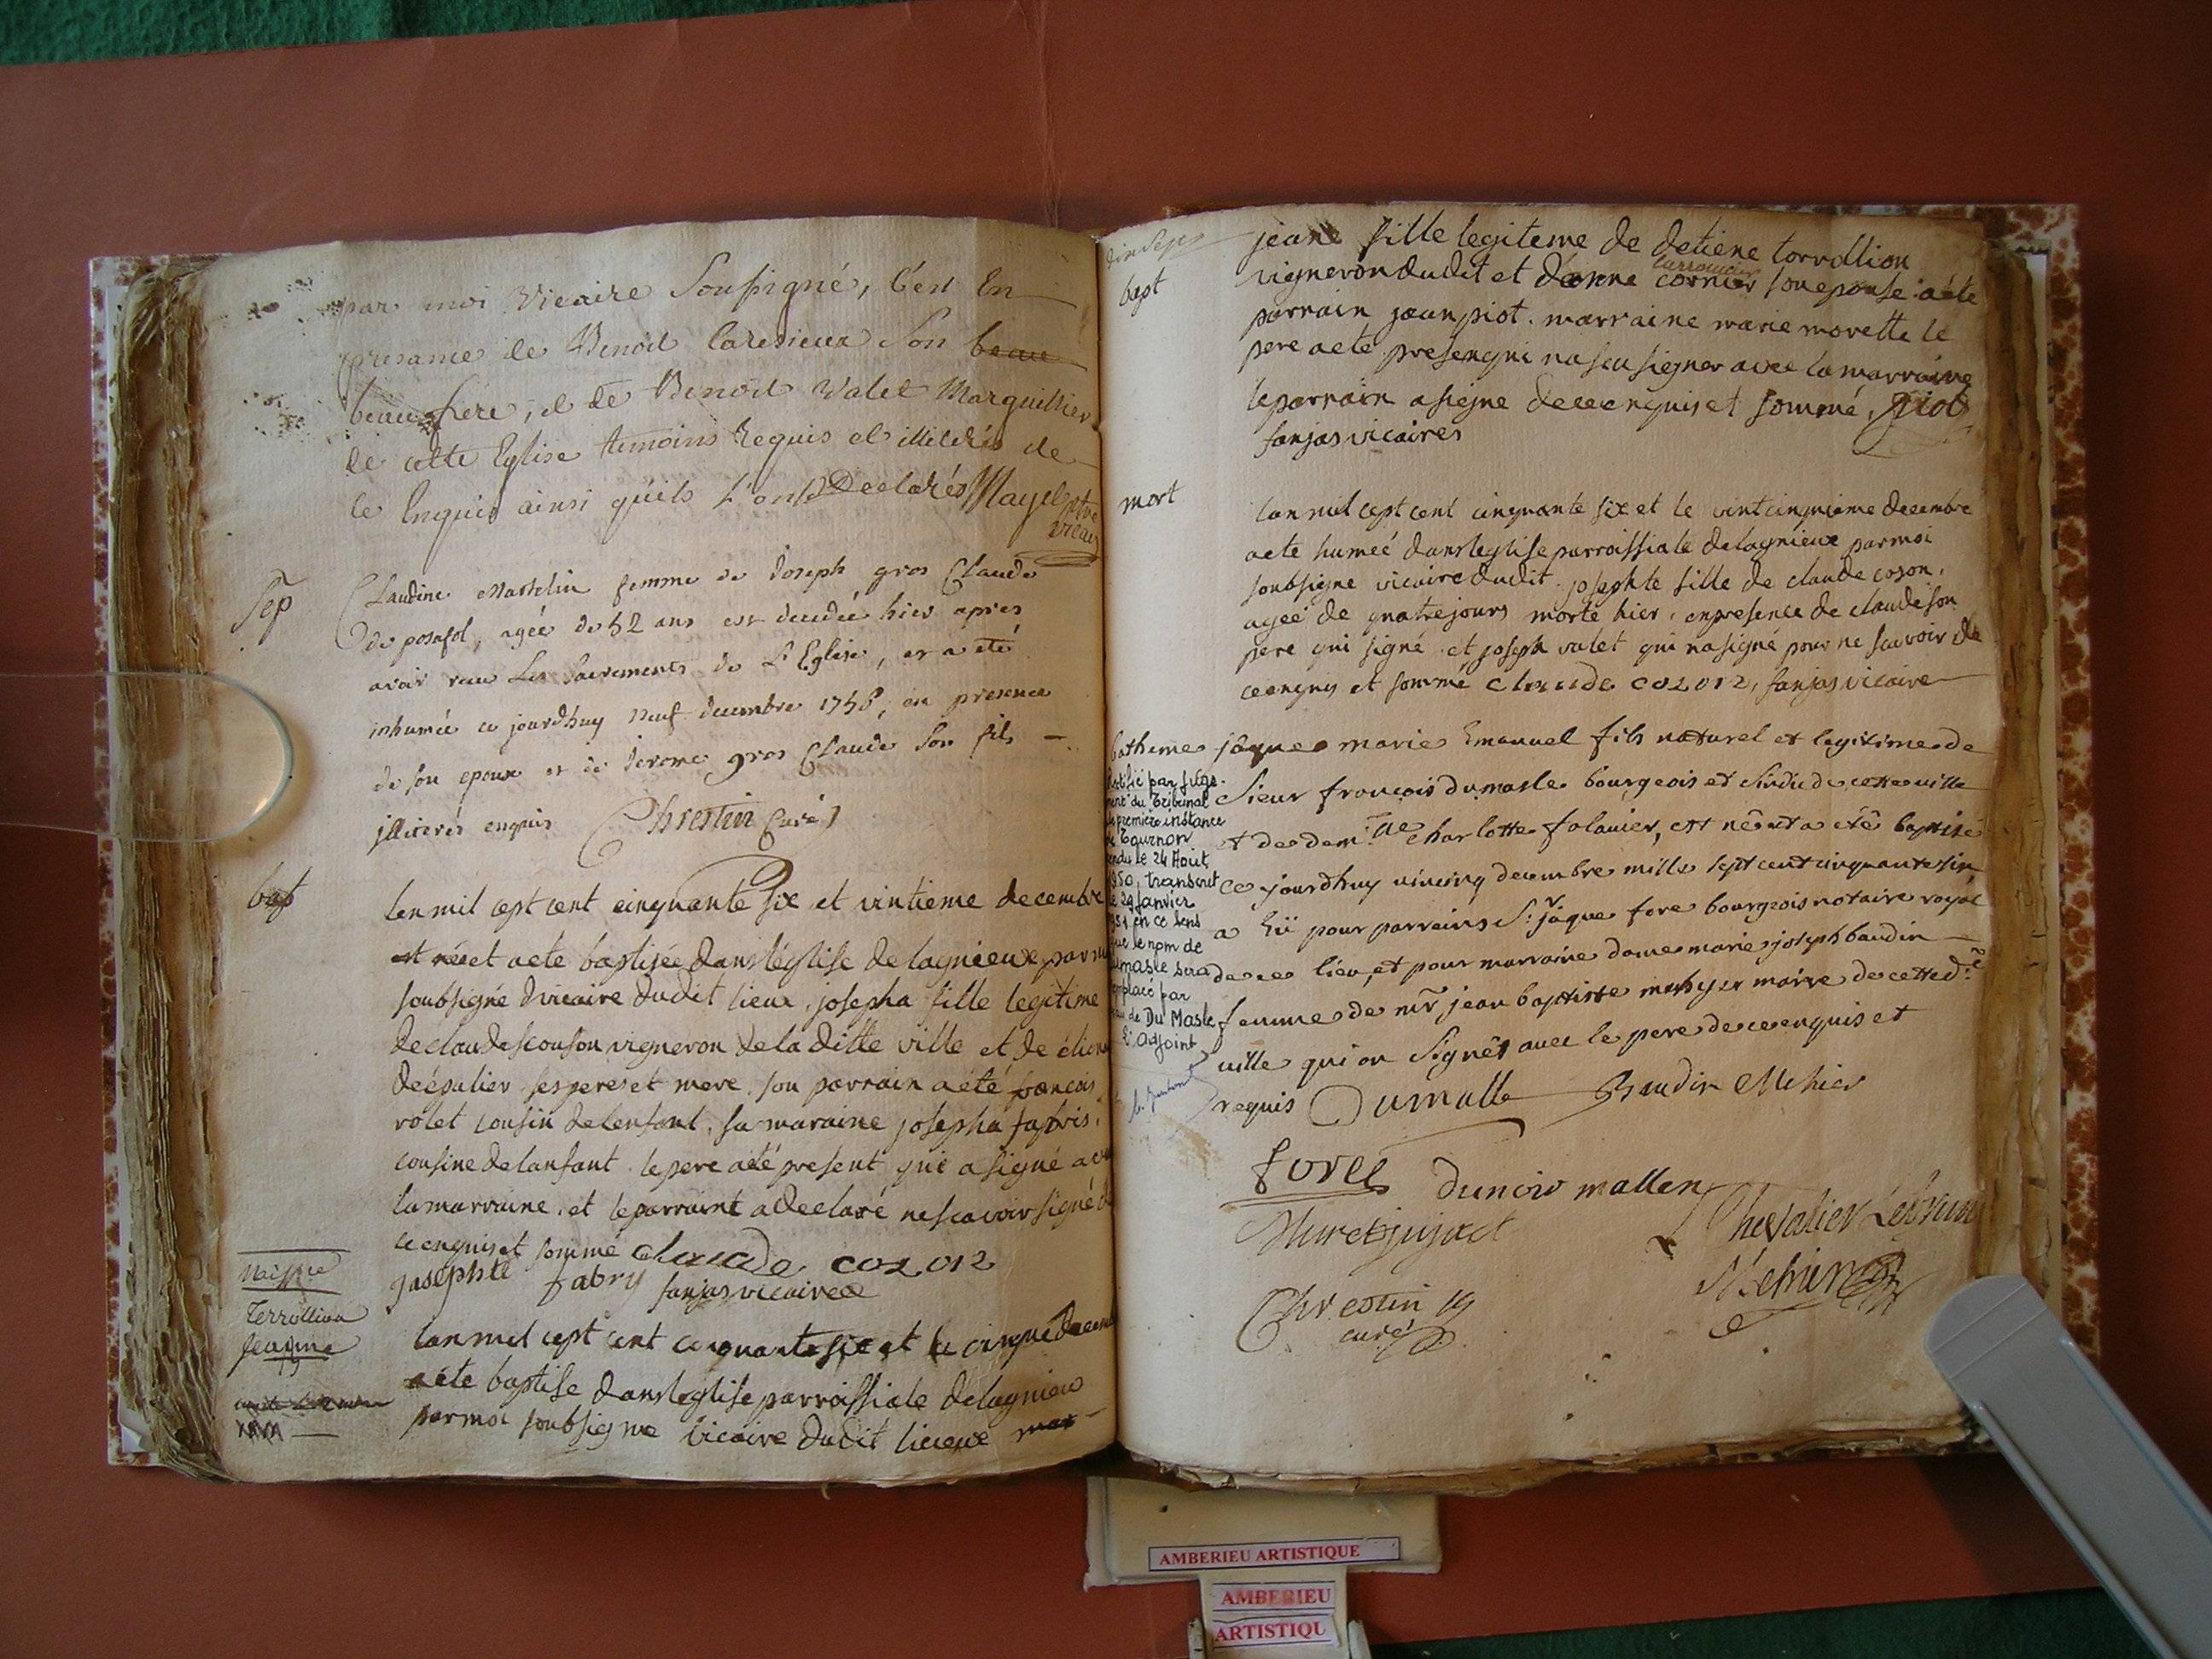 par moi Vicaire Soussigné, C'est En
presance de Benoit Son beau
beau frere, et de Benoit Valet Marguillier
de cette Eglise temoins Requis et illiterés de
ce Enquis ainsi qu'ils L'ont Declarés Mayet ptre
vicaire
Sep
Claudine Masselin femme de Joseph gros Claude
de posafol, agée de 52 ans est decedée hier apres
avoir reçu Les Sacrements de L'Eglise, et a eté
inhumée ce jourdhuy neuf decembre 1756, en presence
de son epoux et de Jerome gros Claude Son fils
illiterés enquis Chrestin Curé
bap
Lan mil cept cent cinquante six et vintieme decembre
est née et aete baptisée dans léglise de lagnieux par moi
soubsigné vicaire dudit lieux, josepha fille legitime
de claude couson vigneron de la ditte ville et de
ses peres et mere. son parrain a été francois
volet cousin de lenfant, sa maraine josepha fabris
cousine de lanfant le pere aété present qui a signé avec
la marraine, et le parraint a declaré ne scavoir signé de
ce enquis et sommé claude cozon
josephte fabry fanjas vicaire
Terrollion
Jeanne
Lan mil cept cent cinquante six et le cinque decembre
aéte baptise dans leglise parroissiale de lagnieu
par moi soubsigne vicaire dudit lieux mar
bapt
jeane fille legiteme de detiene torrollion
vigneron dudit et d'anne cornier son epouse aéte
parrain jean piot. marraine marie morette le
pere aete presen qui na scu signer avec la marraine
le parrain a signe de ce enquis et sommé, piot
fanjas vicaires
mort
Lan mil cept cent cinquante six et le vintcinquieme decembre
aete humeé dans leglise parroissiale de lagnieux par moi
soubsigne vicaire dudit. josephte fille de claude coson,
ageé de quatre jours morte hier, en presence de claude son
pere qui signé et joseph valet qui na signé pour ne scavoir de
ce enquis et sommé claude cozon, fanjas vicaire
batheme jâques marie Emanuel fils naturel et legitime de
Sieur françois dumasle bourgeois et Sindic de cette ville
et de dem.lle charlotte folavier, est né et a eté baptisé
ce jourdhuy vincinq decembre mille sept cent cinquante six
a Eü pour parrains Sr. jâque fore bourgeois notaire royal
de ce lieu, et pour marraine dame marie joseph baudin
femme de mr jean baptiste mehyer maire de cette de
ville qui on Signés avec le pere de ce enquis et
requis Dumalle Baudin Mehier
Rectifié par juge-
ment du Tribunal
de première instance
de Tournon
rendu le 24 Août
1950, transcrit
le 29 Janvier
1951 en ce sens
que le nom de
Dumasle sera
remplacé par
celui de Du Masle
L'Adjoint
forel dunoir mallen
Muret jujact Chevalier Lebrun
Chrestin
curé
AMBERIEU ARTISTIQUE
AMBERIEU
ARTISTIQU